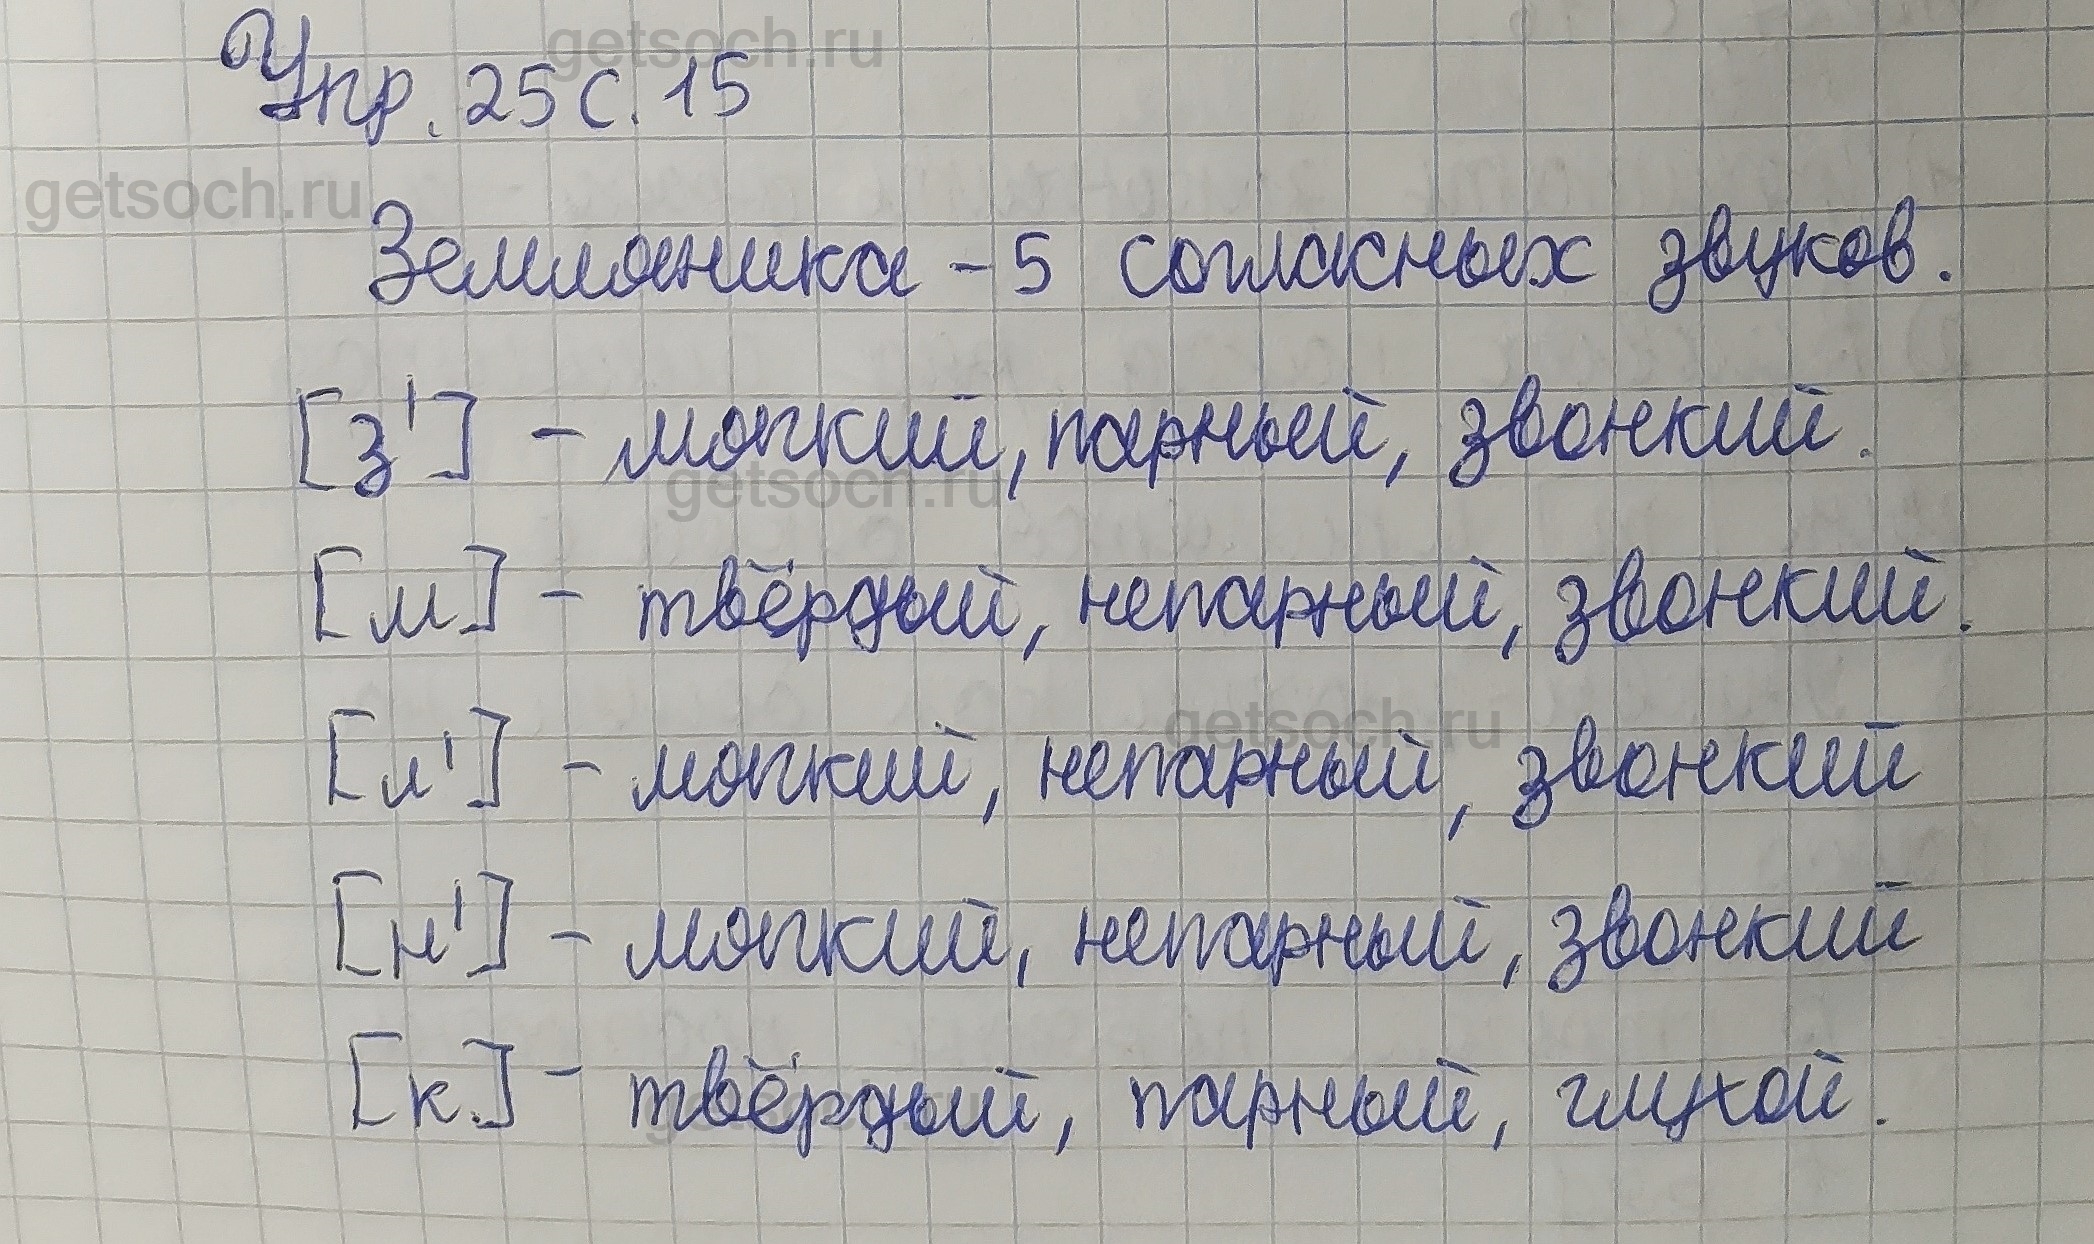 Упр. 25 с. 15
Земляника - 5 согласных звуков.
[з'] - мягкий, парный, звонкий.
[м] - твёрдый, непарный, звонкий.
[л'] - мягкий, непарный, звонкий
[н'] - мягкий, непарный, звонкий
[к.] - твёрдый, парный, глухой.
getsoch.ru
getsoch.ru
getsoch.ru
getsoch.ru